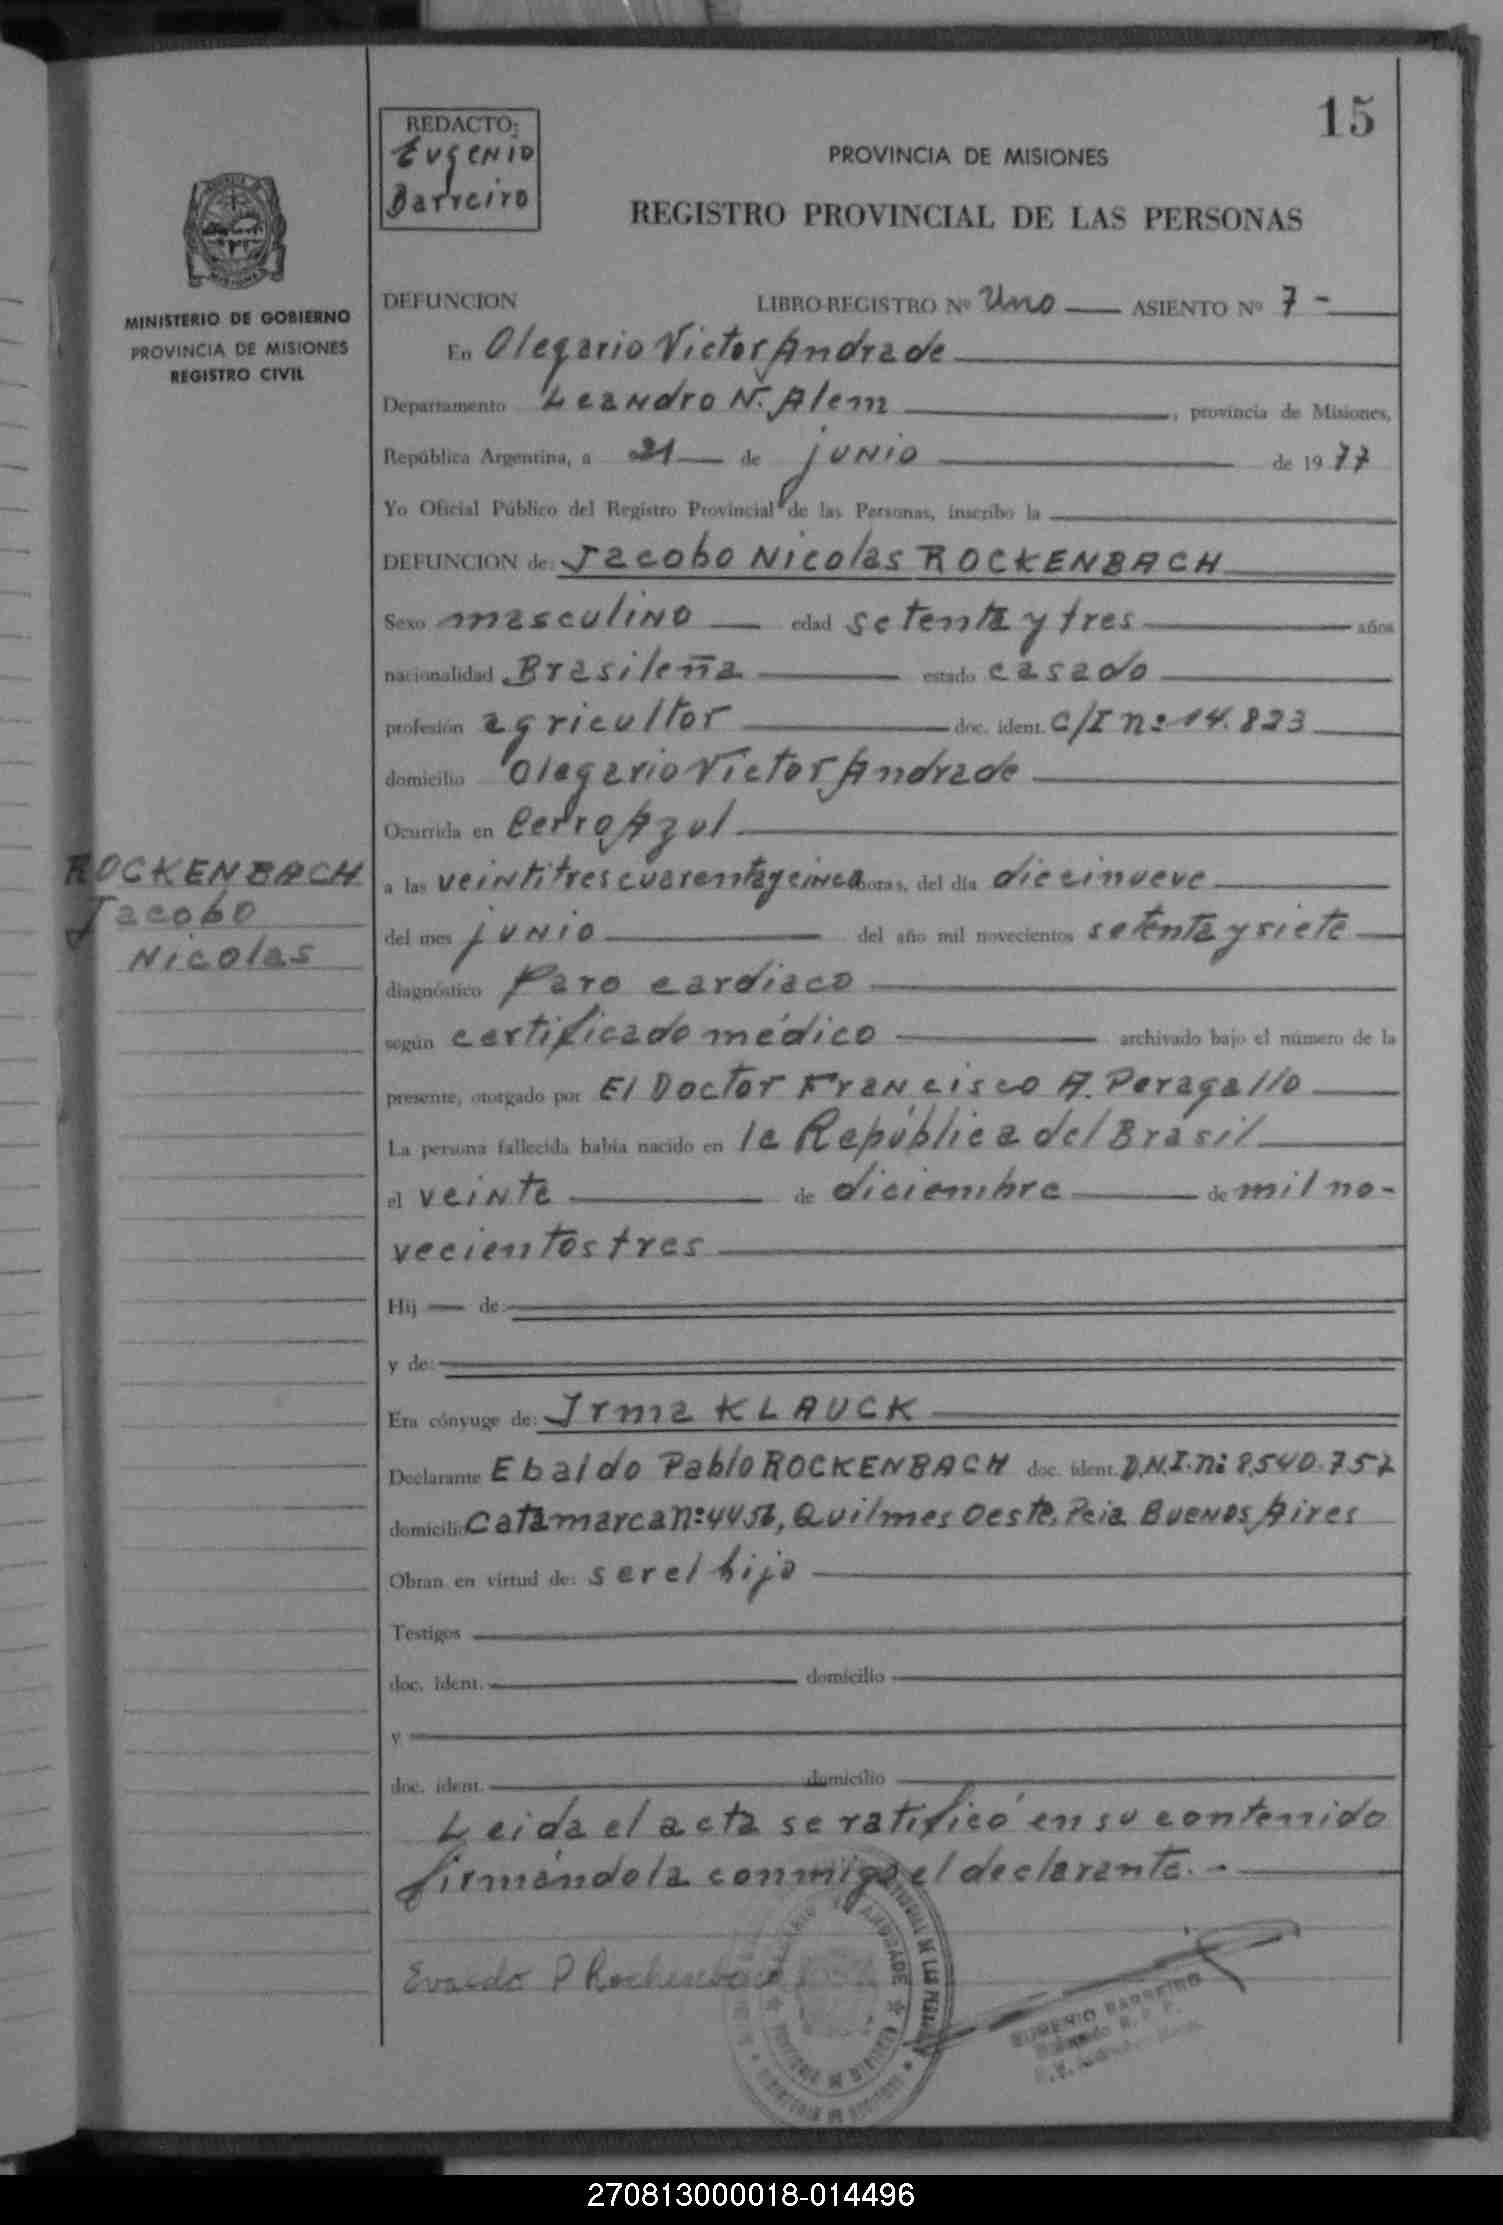 15
REDACTO:
Eugenio
Barreiro
PROVINCIA DE MISIONES
REGISTRO PROVINCIAL DE LAS PERSONAS
MINISTERIO DE GOBIERNO
PROVINCIA DE MISIONES
REGISTRO CIVIL
DEFUNCION LIBRO-REGISTRO Nº Uno ASIENTO Nº 7 -
En Olegario Victor Andrade
Departamento Leandro N. Alem, provincia de Misiones,
República Argentina, a 21 de junio de 1977
Yo Oficial Público del Registro Provincial de las Personas, inscribo la
DEFUNCION de: Jacobo Nicolas ROCKENBACH
Sexo masculino edad setenta y tres años
nacionalidad Brasileña estado casado
profesión agricultor doc. ident. C/I nº 14.823
domicilio Olegario Victor Andrade
Ocurrida en Cerro Azul
ROCKENBACH
Jacobo
Nicolas
a las veintitres cuarenta y cinco horas, del día diecinueve
del mes junio del año mil novecientos setenta y siete
diagnóstico Paro cardiaco
según certificado médico archivado bajo el número de la
presente, otorgado por El Doctor Francisco A. Peragallo
La persona fallecida había nacido en la República del Brasil
el veinte de diciembre de mil no-
vecientos tres
Hij de:
y de:
Era cónyuge de: Irma KLAUCK
Declarante Ebaldo Pablo ROCKENBACH doc. ident. D.N.I. nº 8.540.752
domicilio Catamarca nº 4456, Quilmes Oeste, Pcia Buenos Aires
Obran en virtud de: ser el hijo
Testigos
doc. ident. domicilio
y
doc. ident. domicilio
Leida el acta se ratificó en su contenido
firmándola conmigo el declarante. -
Evaldo P Rockenbach
EUGENIO BARREIRO
270813000018-014496